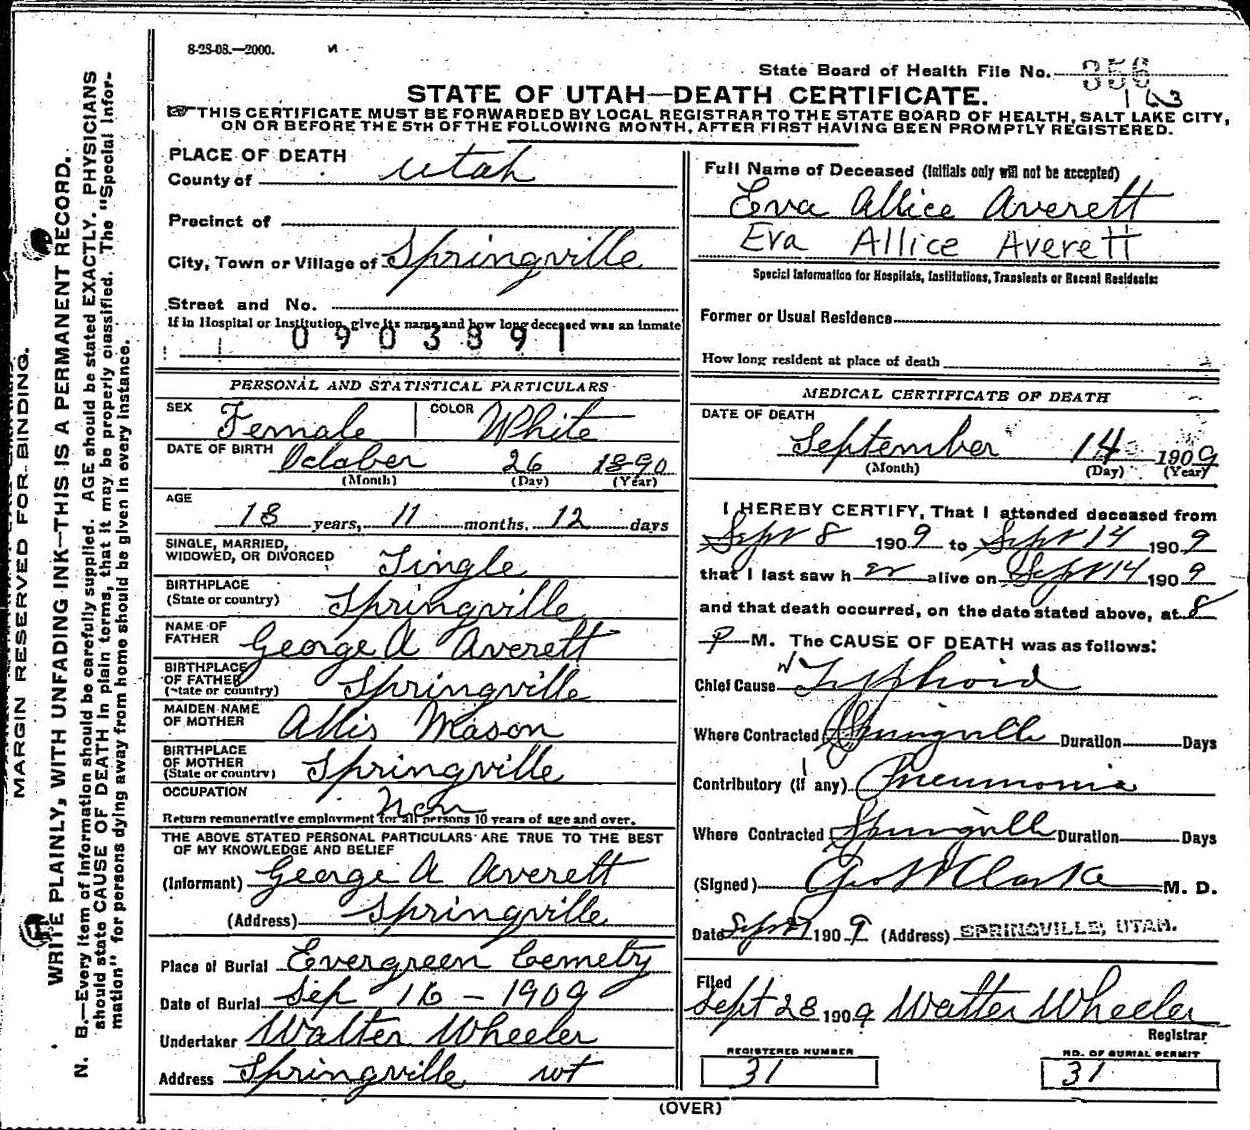 8-28-08.—2000.
State Board of Health File No. 356
163
STATE OF UTAH—DEATH CERTIFICATE.
THIS CERTIFICATE MUST BE FORWARDED BY LOCAL REGISTRAR TO THE STATE BOARD OF HEALTH, SALT LAKE CITY,
ON OR BEFORE THE 5TH OF THE FOLLOWING MONTH, AFTER FIRST HAVING BEEN PROMPTLY REGISTERED.
PLACE OF DEATH
County of Utah
Precinct of
City, Town or Village of Springville
Street and No.
If in Hospital or Institution, give its name and how long deceased was an inmate
0903891
PERSONAL AND STATISTICAL PARTICULARS
SEX Female COLOR White
DATE OF BIRTH October 26 1890
(Month) (Day) (Year)
AGE
18 years, 11 months, 12 days
SINGLE, MARRIED,
WIDOWED, OR DIVORCED Single
BIRTHPLACE
(State or country) Springville
NAME OF
FATHER George A Averett
BIRTHPLACE
OF FATHER
(State or country) Springville
MAIDEN NAME
OF MOTHER Allis Mason
BIRTHPLACE
OF MOTHER
(State or country) Springville
OCCUPATION Non
Return remunerative employment for all persons 10 years of age and over.
THE ABOVE STATED PERSONAL PARTICULARS ARE TRUE TO THE BEST
OF MY KNOWLEDGE AND BELIEF
(Informant) George A Averett
(Address) Springville
Place of Burial Evergreen Cemetry
Date of Burial Sep 16 - 1909
Undertaker Walter Wheeler
Address Springville ut
Full Name of Deceased (Initials only will not be accepted)
Eva Allice Averett
Eva Allice Averett
Special Information for Hospitals, Institutions, Transients or Recent Residents:
Former or Usual Residence
How long resident at place of death
MEDICAL CERTIFICATE OF DEATH
DATE OF DEATH
September 14 1909
(Month) (Day) (Year)
I HEREBY CERTIFY, That I attended deceased from
Sept 8 1909 to Sept 14 1909
that I last saw h er alive on Sept 14 1909
and that death occurred, on the date stated above, at 8
P M. The CAUSE OF DEATH was as follows:
Chief Cause Typhoid
Where Contracted Springville Duration Days
Contributory (if any) Pneumonia
Where Contracted Springville Duration Days
(Signed) Geo W Clarke M. D.
Date Sept 1909 (Address) SPRINGVILLE, UTAH.
Filed
Sept 28 1909 Walter Wheeler
Registrar
REGISTERED NUMBER
31
NO. OF BURIAL PERMIT
31
(OVER)
MARGIN RESERVED FOR BINDING.
WRITE PLAINLY, WITH UNFADING INK—THIS IS A PERMANENT RECORD.
N. B.—Every item of information should be carefully supplied. AGE should be stated EXACTLY. PHYSICIANS
should state CAUSE OF DEATH in plain terms, that it may be properly classified. The "Special Infor-
mation" for persons dying away from home should be given in every instance.